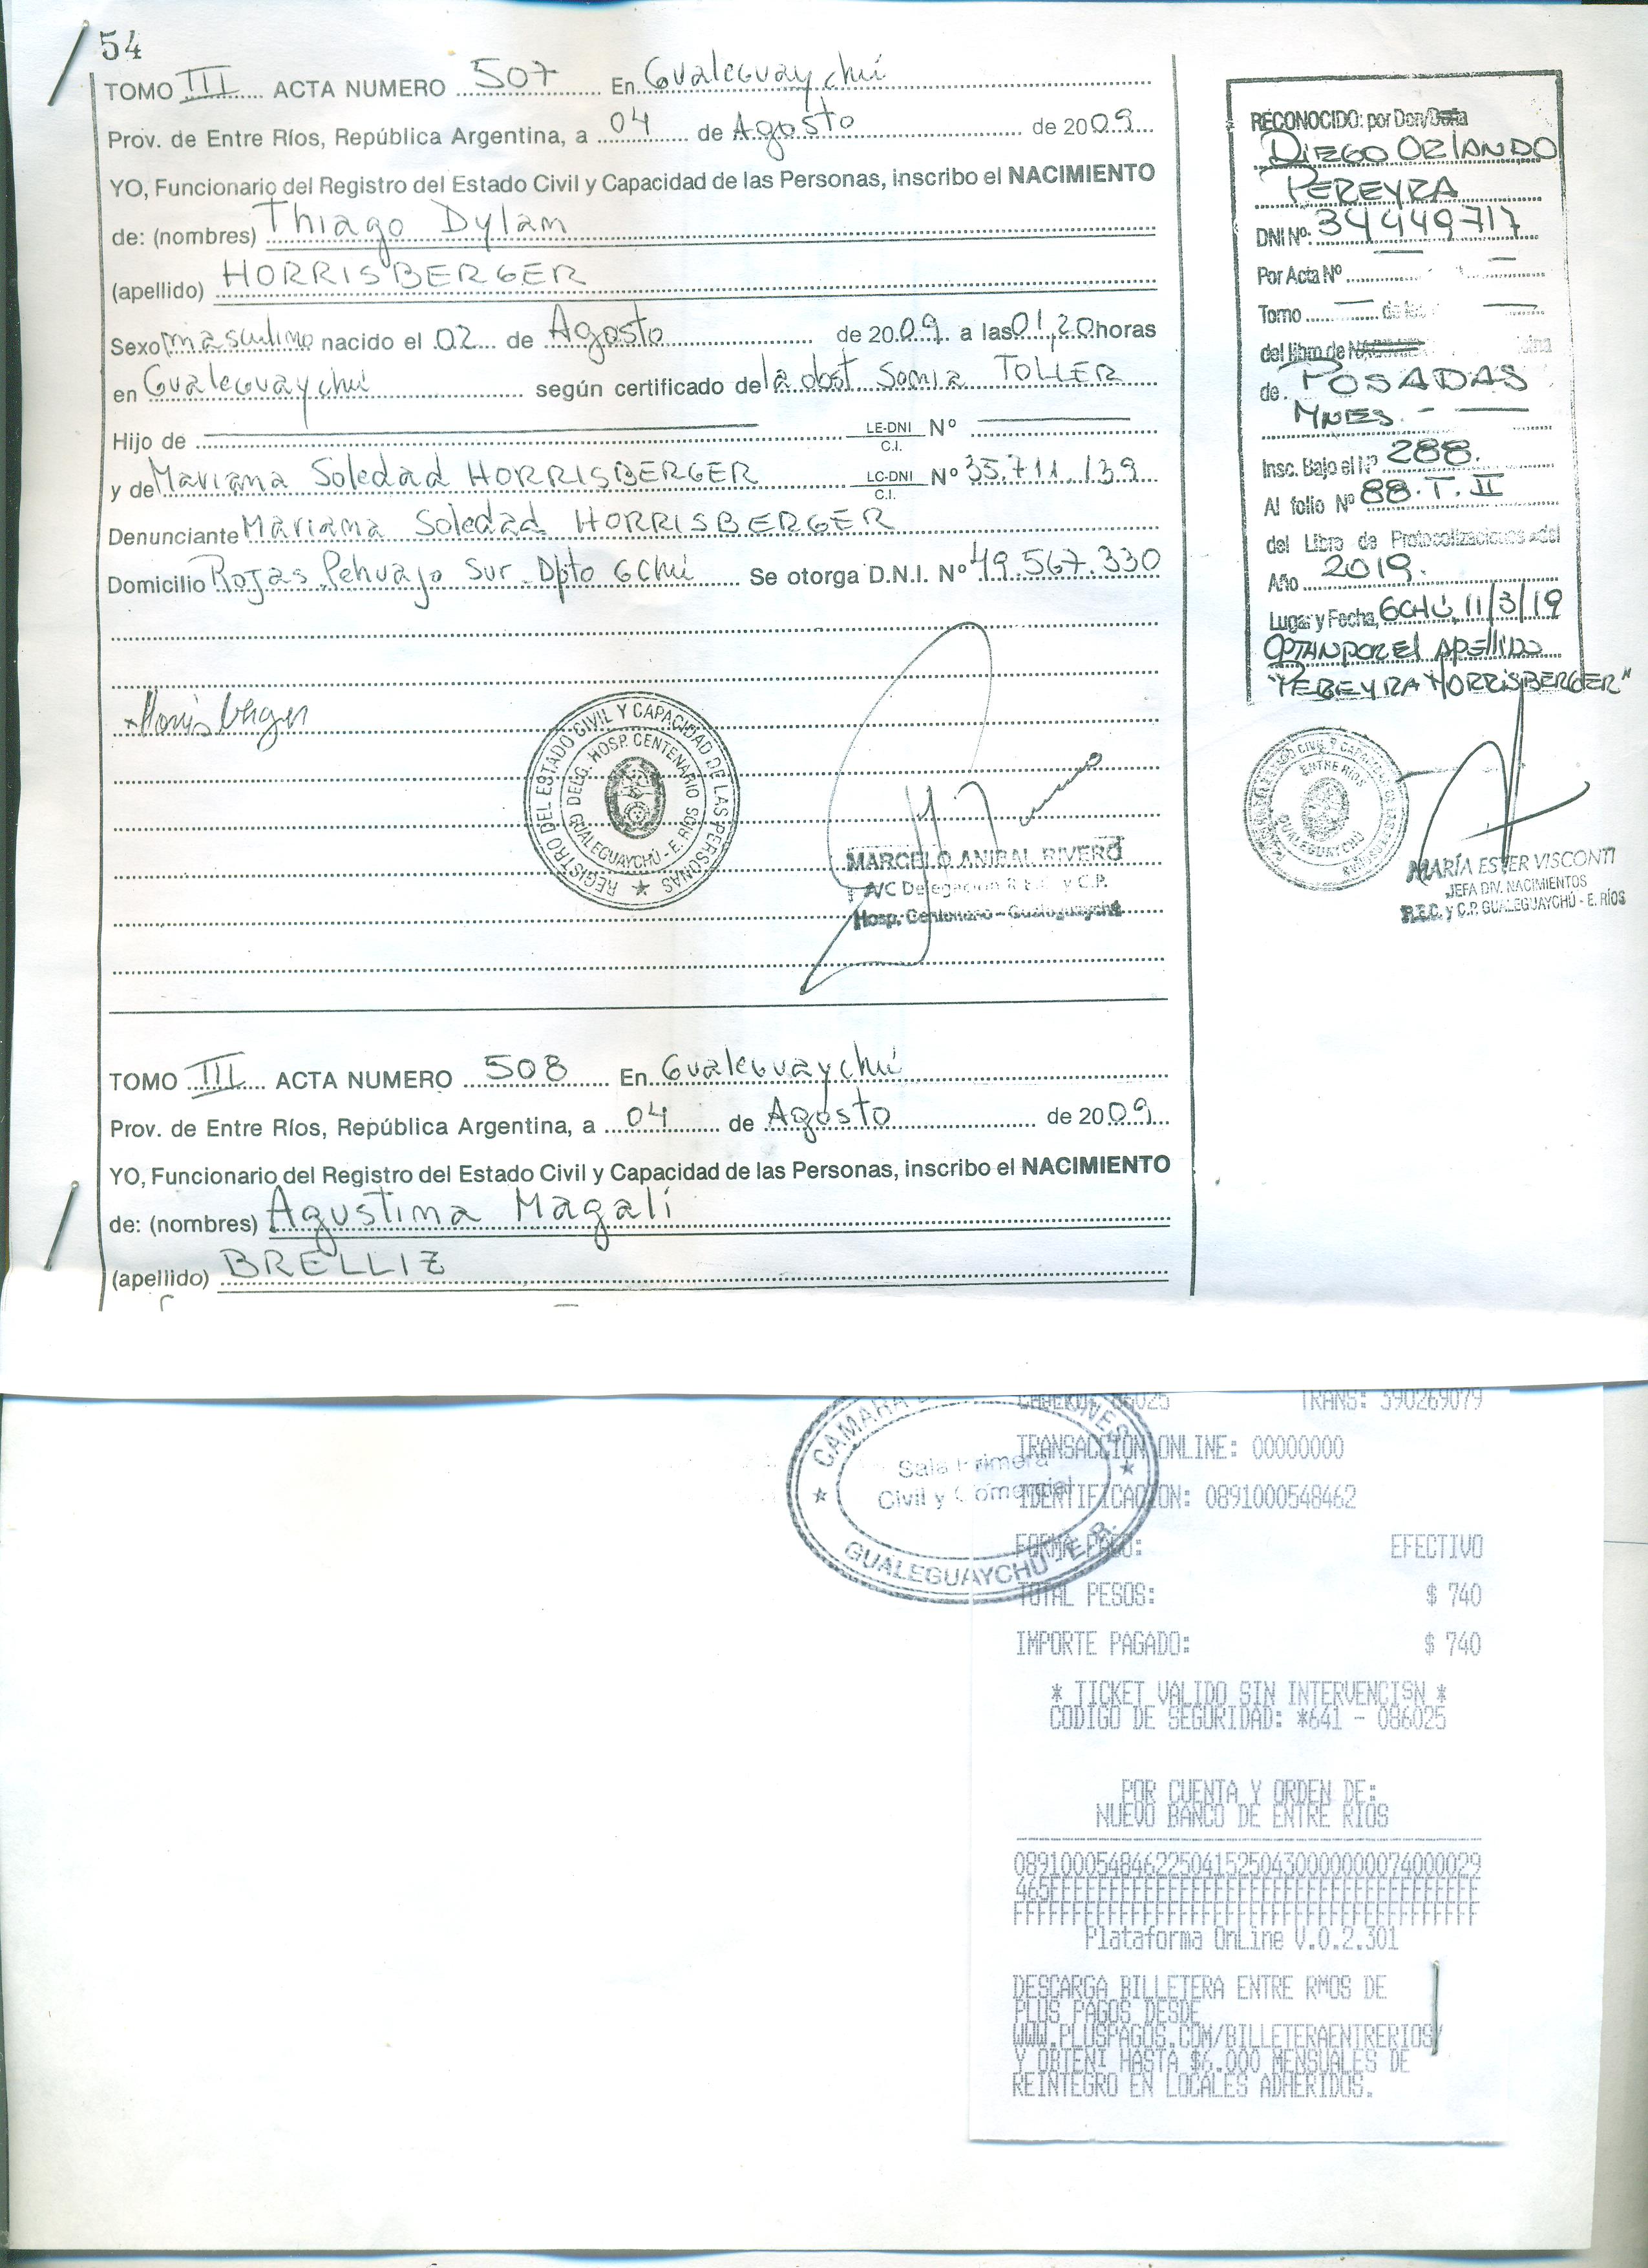 54
TOMO III ACTA NUMERO 507 En Gualeguaychú
Prov. de Entre Ríos, República Argentina, a 04 de Agosto de 2009
YO, Funcionario del Registro del Estado Civil y Capacidad de las Personas, inscribo el NACIMIENTO
de: (nombres) Thiago Dylan
(apellido) HORRISBERGER
Sexo masculino nacido el 02 de Agosto de 2009 a las 01,20 horas
en Gualeguaychú según certificado de la obst Sonia TOLLER
Hijo de LE-DNI C.I. Nº
y de Mariana Soledad HORRISBERGER LC-DNI C.I. Nº 35.711.139
Denunciante Mariana Soledad HORRISBERGER
Domicilio Rojas Pehuajo Sur Dpto Gchú Se otorga D.N.I. Nº 49.567.330
Horrisberger
REGISTRO DEL ESTADO CIVIL Y CAPACIDAD DE LAS PERSONAS
DELEG. HOSP. CENTENARIO
GUALEGUAYCHÚ - E. RÍOS
MARCELO ANIBAL RIVERO
A/C Delegación R.E.C. y C.P.
Hosp. Centenario - Gualeguaychú
RECONOCIDO: por Don/Doña
DIEGO ORLANDO
PEREYRA
DNI Nº: 34449717
Por Acta Nº
Tomo de los
del libro de
de POSADAS
MNES. -
Insc. Bajo el Nº 288.
Al folio Nº 88.T.II
del Libro de Protocolizaciones del
Año 2019.
Lugar y Fecha, GCHÚ, 11/3/19
OPTAN POR El APEllIDO
"PEREYRA HORRISBERGER"
ENTRE RÍOS
GUALEGUAYCHÚ
MARÍA ESTER VISCONTI
JEFA DIV. NACIMIENTOS
R.E.C. y C.P. GUALEGUAYCHÚ - E. RÍOS
TOMO III ACTA NUMERO 508 En Gualeguaychú
Prov. de Entre Ríos, República Argentina, a 04 de Agosto de 2009
YO, Funcionario del Registro del Estado Civil y Capacidad de las Personas, inscribo el NACIMIENTO
de: (nombres) Agustina Magalí
(apellido) BRELLIZ
CAMARA
Sala Primera
Civil y Comercial
GUALEGUAYCHÚ E.R.
CAJERO: 86025 TRANS: 390269079
TRANSACCION ONLINE: 00000000
IDENTIFICACION: 0891000548462
FORMA PAGO: EFECTIVO
TOTAL PESOS: $ 740
IMPORTE PAGADO: $ 740
* TICKET VALIDO SIN INTERVENCISN *
CODIGO DE SEGURIDAD: *641 - 086025
POR CUENTA Y ORDEN DE:
NUEVO BANCO DE ENTRE RIOS
08910005484622504152504300000000074000029
465FFFFFFFFFFFFFFFFFFFFFFFFFFFFFFFFFFFFFF
FFFFFFFFFFFFFFFFFFFFFFFFFFFFFFFFFFFFFFFFF
Plataforma OnLine V.0.2.301
DESCARGA BILLETERA ENTRE RMOS DE
PLUS PAGOS DESDE
WWW.PLUSPAGOS.COM/BILLETERAENTRERIOS/
Y OBTENI HASTA $6.000 MENSUALES DE
REINTEGRO EN LOCALES ADHERIDOS.